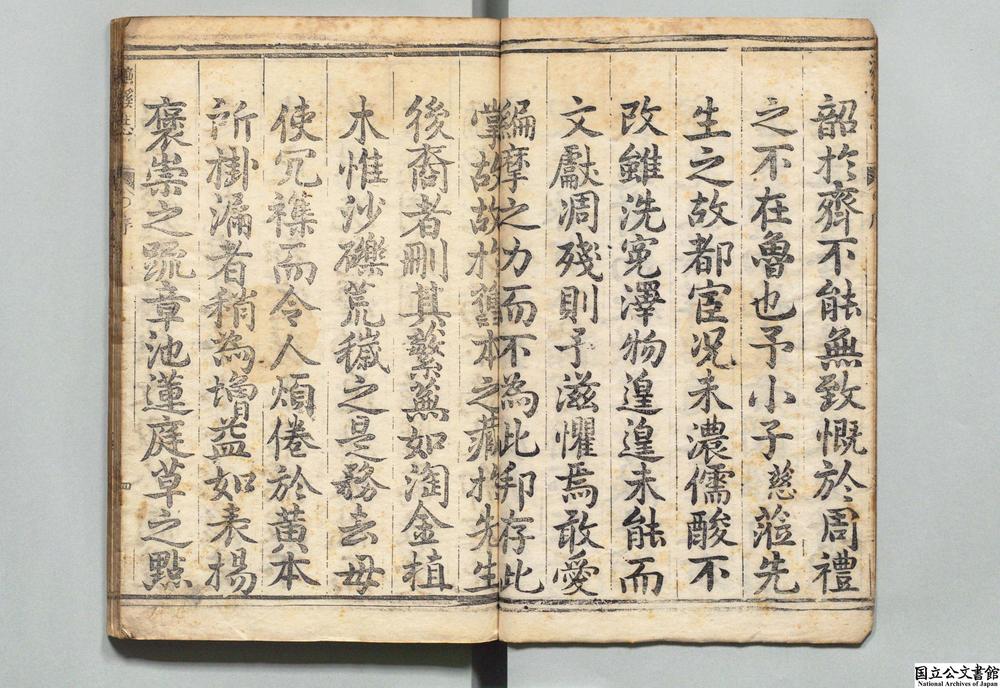 韶扵齊不能無致慨於周禮
之不在魯也予小子慈蒞先
生之故都宦况未濃儒酸不
改雖洗寃澤物遑遑未能而
文獻凋殘則予滋懼焉敢愛
編摩之力而不為此邦存此
掌故故扵舊本之藏扵先生
後裔者刪其蘩蕪如淘金植
木惟沙礫荒穢之是務去毋
使冗襍而令人煩倦於黄本
所掛漏者稍為增益如表揚
褒崇之䟽章池蓮庭草之㸃
四
国立公文書館
National Archives of Japan